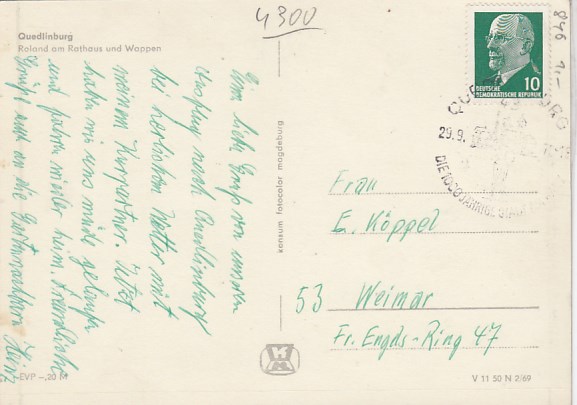 4300
846 1,-
Quedlinburg
Roland am Rathaus und Wappen
DEUTSCHE
DEMOKRATISCHE REPUBLIK
10
29.9.
DIE 1000JÄHRIGE STADT
Einen lieben Gruß von unserem
Ausflug nach Quedlinburg
bei herrlichem Wetter mit
meinem Kurpartner. Jetzt
haben wir uns müde gelaufen
und fahren wieder heim. Freundliche
Grüße auch an die Gartennachbarn Heinz
konsum fotocolor magdeburg
Frau
E. Köppel
53 Weimar
Fr. Engels-Ring 47
EVP -,20 M
V 11 50 N 2/69